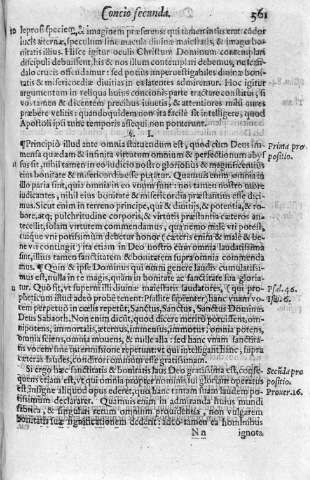 Concio secunda. 561
leprosi speciem, & imaginem præferens: qui tamen in se erat cādor
lucis æternæ, speculum sine macula diuinæ maiestatis, & imago bo-
nitatis illius. Hisce igitur oculis Christum Dominum contemplari
discipuli debuissent, his & nos illum contemplari debemus, ne scan-
dalo crucis offendamur: sed potius impervestigabiles diuinæ boni-
tatis & misericordiæ diuitias in ea latentes admiremur. Hoc igitur
argumentum in reliqua huius concionis parte tractare constitui, si
vos tamen & dicentem precibus iuueritis, & attentiores mihi aures
præbere velitis, quandoquidem non ita facile ista intelliget, quod
Apostoli ipsi tunc temporis assequi non potuerunt.
§. I.
¶Principiò illud ante omnia statuendum est, quod cùm Deus im-
mensa quædam & infinita virtutum omnium & perfectionum aby-
sus sit, nihil tamen in eo iudicio nostro gloriosius & magnificentius
eius bonitate & misericordiæ esse putatur. Quamuis enim omnia in
illo paria sint, quia omnia in eo vnum sunt: nos tamen nostro more
iudicantes, nihil eius bonitate & misericordia præstantius esse
ducimus. Sicut enim in terreno principe, qui & diuitijs, & potentia, & ro-
bore, atq; pulchritudine corporis, & virtutis præstantia cæteros an-
tecellit, solam virtutem commendamus, qua nemo malè vti potest,
eiusque vni potissimum debetur honor (cæteris enim & malè & be-
ne vti contingit) ita etiam in Deo inestro cùm omnia laudatissima
sint, illius tamen sanctitatem & bonitatem supra omnia commenda-
mus. ¶ Quin & ipse Dominus qui omni genere laudis cumulatissi-
mus est, nulla in re magis, quàm in bonitate ac sanctitate sua gloria-
tur. Quo fit, vt superni illi diuinæ maiestatis laudatores, (qui pro-
pheticum illud adeo probè tenent: Psallite sapienter) hanc vnam vo-
cem perpetuò in cœlis repetāt, Sanctus, Sanctus, Sanctus Dominus
Deus Sabaoth. Non enim dicūt, quod dicere meritò potuissent, om-
nipotens, immortalis, æternus, immensus, immotus, omnia potens,
omnia sciens, omnia mouens, & mille alia: sed hanc vnam sanctitatis
vocem sine intermissione repetunt: vt qui intelligant hanc, supra
cæteras laudes, conditori omnium esse gratissimam.
Si ergo hæc sanctitatis & bonitatis laus Deo gratissima est, conse-
quens etiam est, vt qui omnia propter nominis sui gloriam operatus
est, insigne aliquod opus ederet, quo hanc tantam suam laudem po-
tissimum declararet. Quamuis enim in admiranda huius mundi
fabrica, & singulari rerum omnium prouidentia, non vulgarem
bonitatis suæ significationem dederit: tamen adeò ea hominibus
Nn ignota
Prima pro
positio.
Psal. 46.
Isa. 6.
Secūda pro
positio.
Prouer. 16.